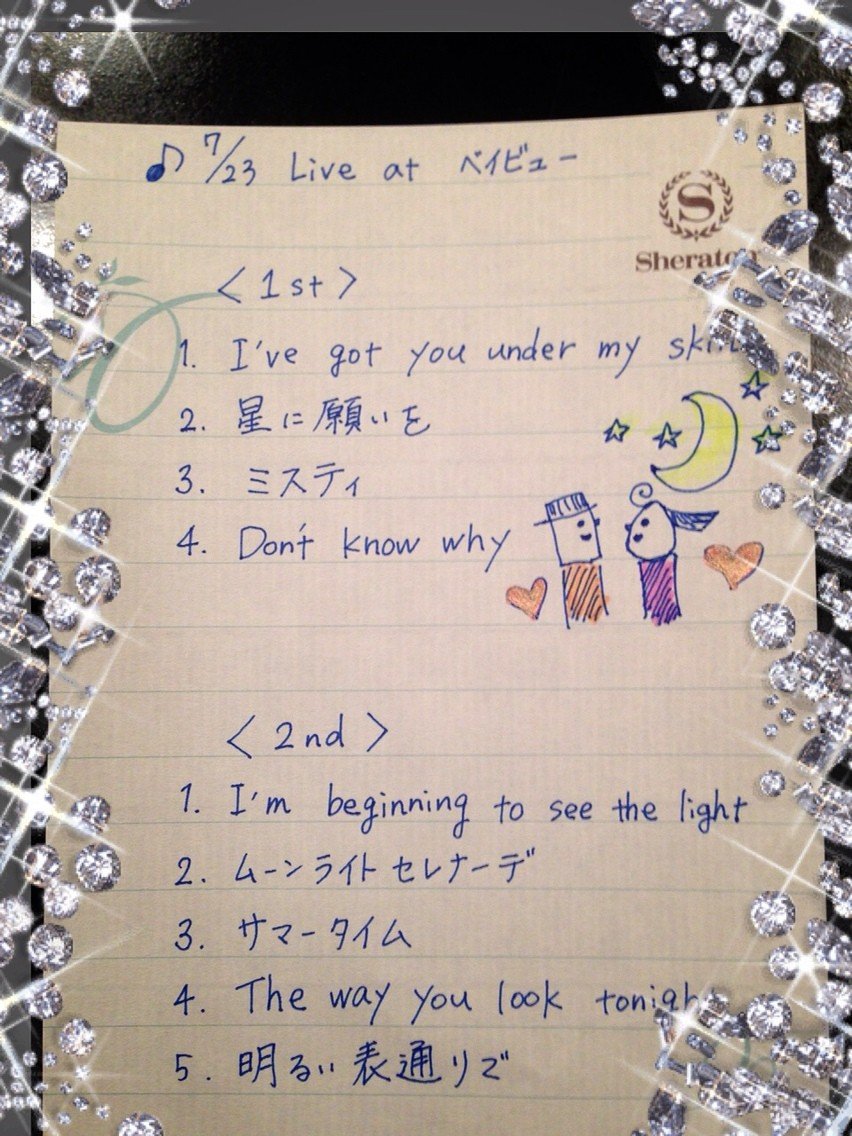 ♪ 7/23 Live at ベイビュー
Sheraton
<1st>
1. I've got you under my skin
2. 星に願いを
3. ミスティ
4. Don't know why
<2nd>
1. I'm beginning to see the light
2. ムーンライトセレナーデ
3. サマータイム
4. The way you look tonight
5. 明るい表通りで